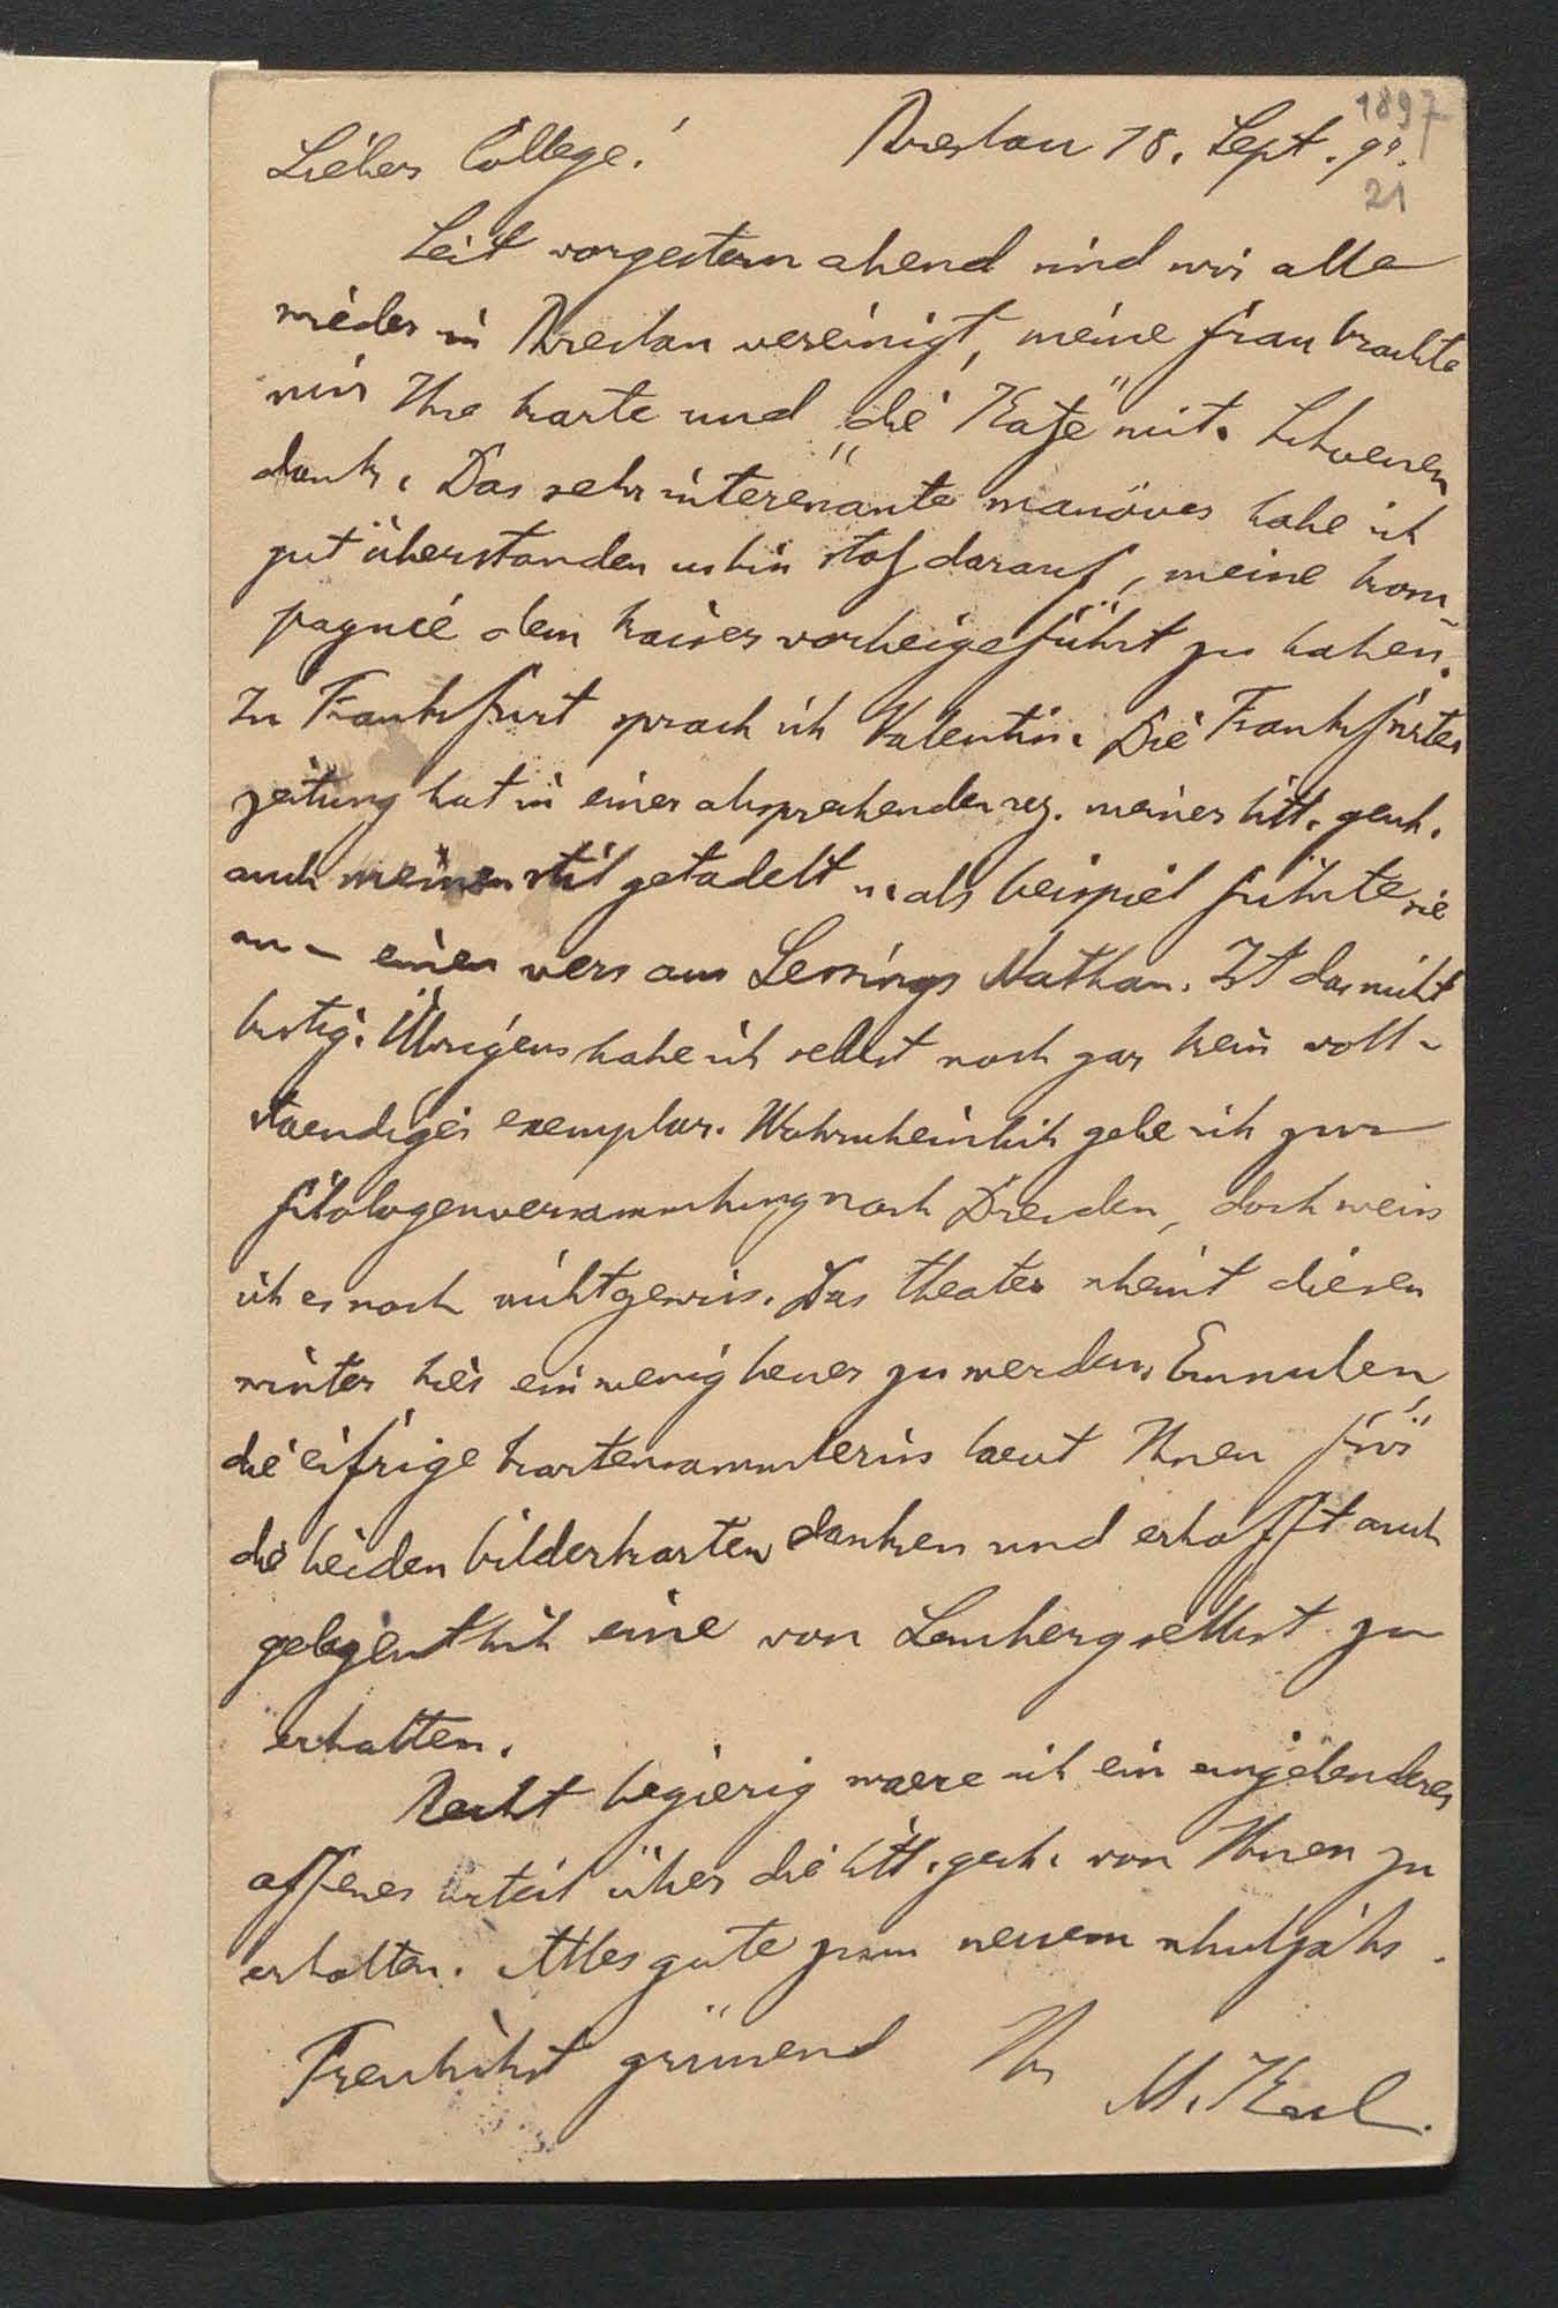 1897
Lieber College! Breslau 18. Sept. 97.
21
Seit vorgestern abend sind wir alle
wieder in Breslau vereinigt, meine frau brachte
mir Ihre karte und „die Katze" mit. Schoenen
dank. Das sehr interessante manöver habe ich
gut überstanden u. bin stolz darauf, meine kom
pagnie dem kaiser vorbeigeführt zu haben.
In Frankfurt sprach ich Valentin. Die Frankfurter
zeitung hat in einer absprechenden rez. meiner litt. gesch.
auch meinen stil getadelt u. als beispiel führte sie
an – einen vers aus Lessings Nathan. Ist das nicht
lustig. Übrigens habe ich selbst noch gar kein voll-
staendiges exemplar. Wahrscheinlich gehe ich zur
filologenversammlung nach Dresden, doch weiss
ich es noch nicht gewiss. Das theater scheint diesen
winter hier ein wenig besser zu werden.
die eifrige kartensammlerin laesst Ihnen für
die beiden bilderkarten danken und erhofft auch
gelegentlich eine von Lemberg selbst zu
erhalten.
Recht begierig waere ich ein eingehenderes
offenes urteil über die litt. gesch. von Ihnen zu
erhalten. Alles gute zum neuem schuljahr.
Freulichst grüssend Ihr
M. Koch.